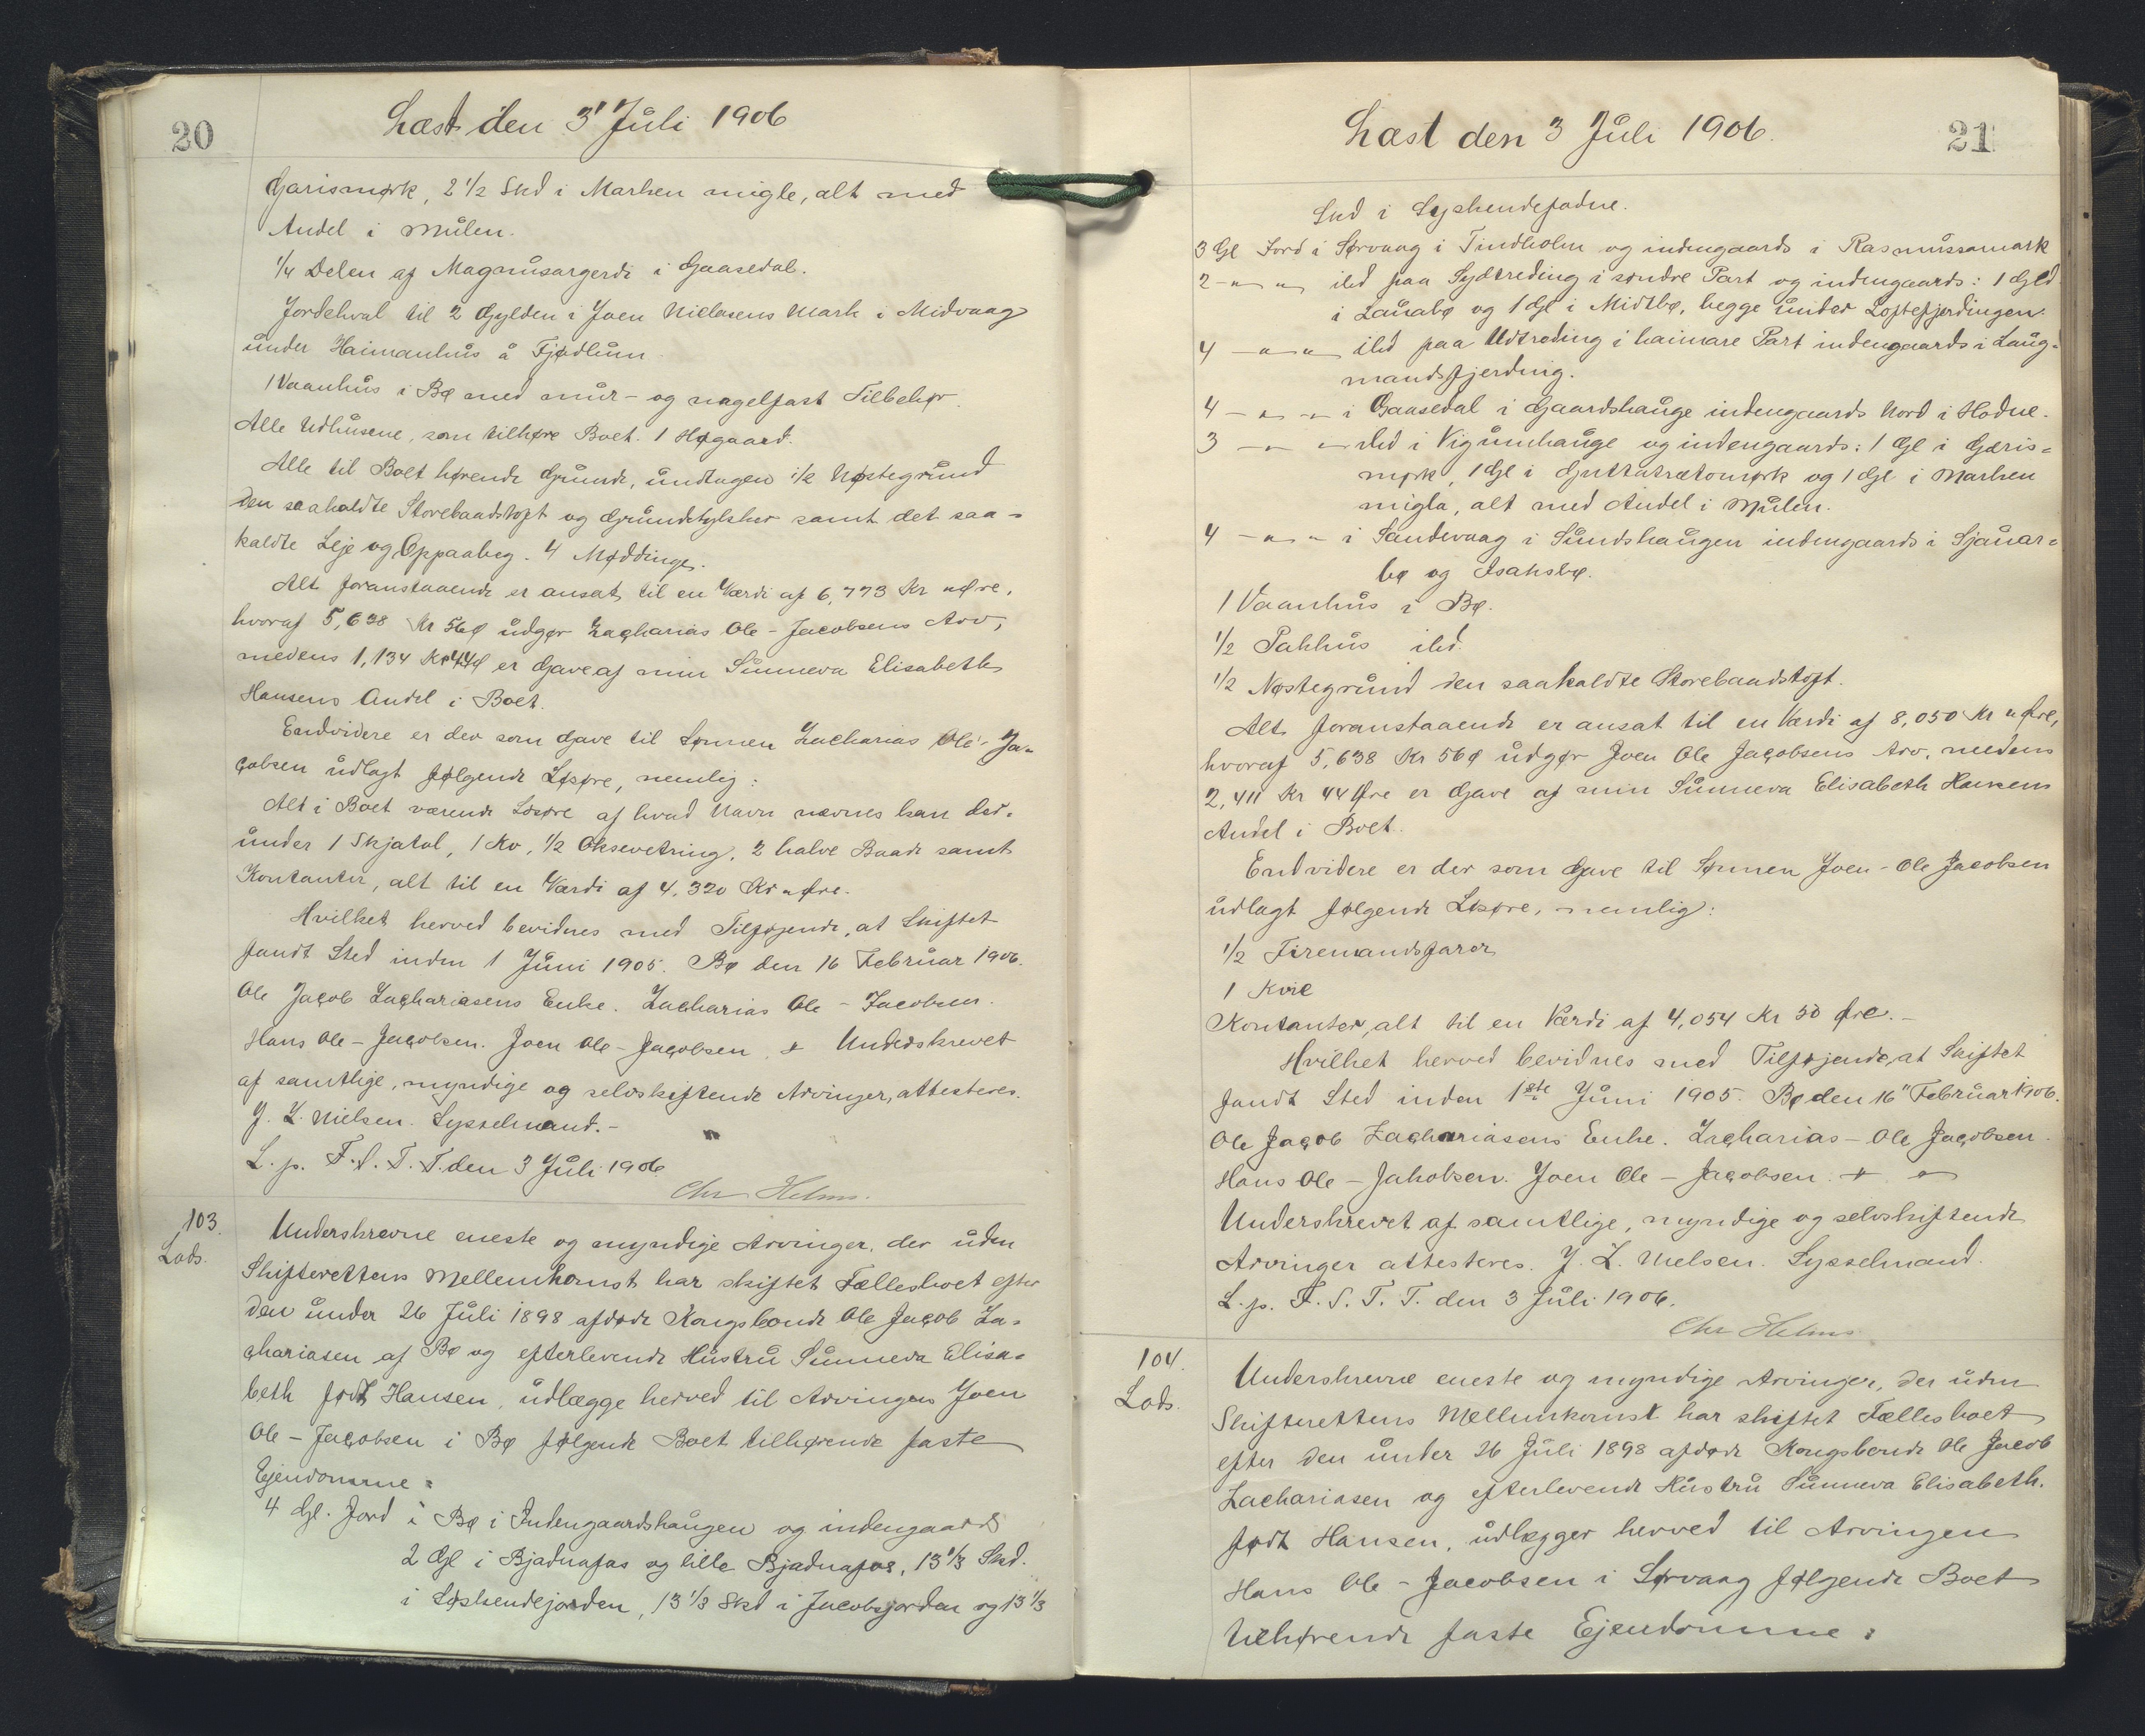 20
Læst den 3' Juli 1906
Garismørk, 2 1/2 Skd i Marken migle, alt med
Andel i Mulen.
1/4 Delen af Magnusargerdi i Gaasedal.
Jordehval til 2 Gylden i Joen Niclasens Mark i Midvaag
under Haimanhus å Fjødlum.
1 Vaanhus i Bø med mur- og nagelfast Tilbehør.
Alle Udhusene, som tilhøre Boet. 1 Høgaard.
Alle til Boet hørende Grunde, undtagen 1/2 Nøstegrund
den saakaldte Storebaadstoft og Grundstykker samt det saa=
kaldte Leje og Oppaabeg. 4 Møddinge.
Alt foranstaaende er ansat til en Værdi af 6,773 Kr " Øre,
hvoraf 5,638 Kr 56Ø udgør Zacharias Ole-Jacobsens Arv,
medens 1,134 Kr 44Ø er Gave af min Sunneva Elisabeth
Hansens Andel i Boet.
Endvidere er der som Gave til Sønnen Zacharias Ole-Ja=
cobsen udlagt følgende Løsøre, nemlig:
Alt i Boet værende Løsøre af hvad Navn nævnes kan der=
under 1 Skjatol, 1 Ko, 1/2 Oksevetring, 2 halve Baade samt
Kontanter, alt til en Værdi af 4,320 Kr " Øre.
Hvilket herved bevidnes med Tilføjende, at Skiftet
fandt Sted inden 1 Juni 1905. Bø den 16 Februar 1906.
Ole Jacob Zachariasens Enke. Zacharias Ole-Jacobsen.
Hans Ole-Jacobsen. Joen Ole-Jacobsen. + Underskrevet
af samtlige, myndige og selvskiftende Arvinger, attesteres.
J. Z. Nielsen. Sysselmand.-
L. p. F. S. T. T. den 3 Juli 1906
Chr Helms.
103.
Lods.
Underskrevne eneste og myndige Arvinger, der uden
Skifterettens Mellemkomst har skiftet Fællesboet efter
den under 26 Juli 1898 afdøde Kongsbonde Ole Jacob Za=
chariasen af Bø og efterlevende Hustru Sunneva Elisa=
beth født Hansen, udlægge herved til Arvingen Joen
Ole-Jacobsen i Bø følgende Boet tilhørende faste
Ejendomme:
4 Gl. Jord i Bø i Indengaardshaugen og indengaards
2 Gl i Bjadnafas og lille Bjadnafos, 13 1/3 Skd.
i Søskendejorden, 13 1/3 Skd i Jacobsjorden og 13 1/3
Læst den 3 Juli 1906.
21
Skd i Syskendejadne.
3 Gl Jord i Sørvaag i Tindholm og indengaards i Rasmussamark
2 - " - " ibd paa Sydtreding i søndre Part og indengaards: 1 Gyld.
i Lausabø og 1 Gl i Midtbø, begge under Loftefjerdingen.
4 - " - " ibd paa Udtreding i haimare Part indengaards i Laug=
mandsfjerding.
4 - " - " i Gaasedal i Gaardshauge indengaards Nord i Hodne.
3 - " - " ibd i Vigumhauge og indengaards: 1 Gl i Gæris=
mørk, 1 Gl i Guttatrætomørk og 1 Gl i Marken
migla, alt med Andel i Mulen.
4 - " - " i Sandevaag i Sundshaugen indengaards i Sjauar=
bø og Isaksbø.
1 Vaanhus i Bø.
1/2 Pakhus ibd.
1/2 Nøstegrund den saakaldte Storebaadstoft.
Alt foranstaaende er ansat til en Værdi af 8,050 Kr " Øre,
hvoraf 5,638 Kr 56Ø udgør Joen Ole Jacobsens Arv, medens
2,411 Kr 44 Øre er Gave af min Sunneva Elisabeth Hansens
Andel i Boet.
Endvidere er der som Gave til Sønnen Joen-Ole Jacobsen
udlagt følgende Løsøre, nemlig:
1/2 Firemandsfarer
1 Kvie
Kontanter, alt til en Værdi af 4,054 Kr 50 Øre.-
Hvilket herved bevidnes med Tilføjende, at Skiftet
fandt Sted inden 1ste Juni 1905. Bø den 16" Februar 1906.
Ole Jacob Zachariasens Enke. Zacharias-Ole Jacobsen.
Hans Ole-Jakobsen. Joen Ole-Jacobsen. +
Underskrevet af samtlige, myndige og selvskiftende
Arvinger attesteres. J. Z. Nielsen. Sysselmand.
L. p. F. S. T. T. den 3 Juli 1906.
Chr Helms
104.
Lods.
Underskrevne eneste og myndige Arvinger, der uden
Skifterettens Mellemkomst har skiftet Fællesboet
efter den under 26 Juli 1898 afdøde Kongsbonde Ole Jacob
Zachariasen og efterlevende Hustru Sunneva Elisabeth.
født Hansen, udlægger herved til Arvingen
Hans Ole-Jacobsen i Sørvaag følgende Boet
tilhørende faste Ejendomme: